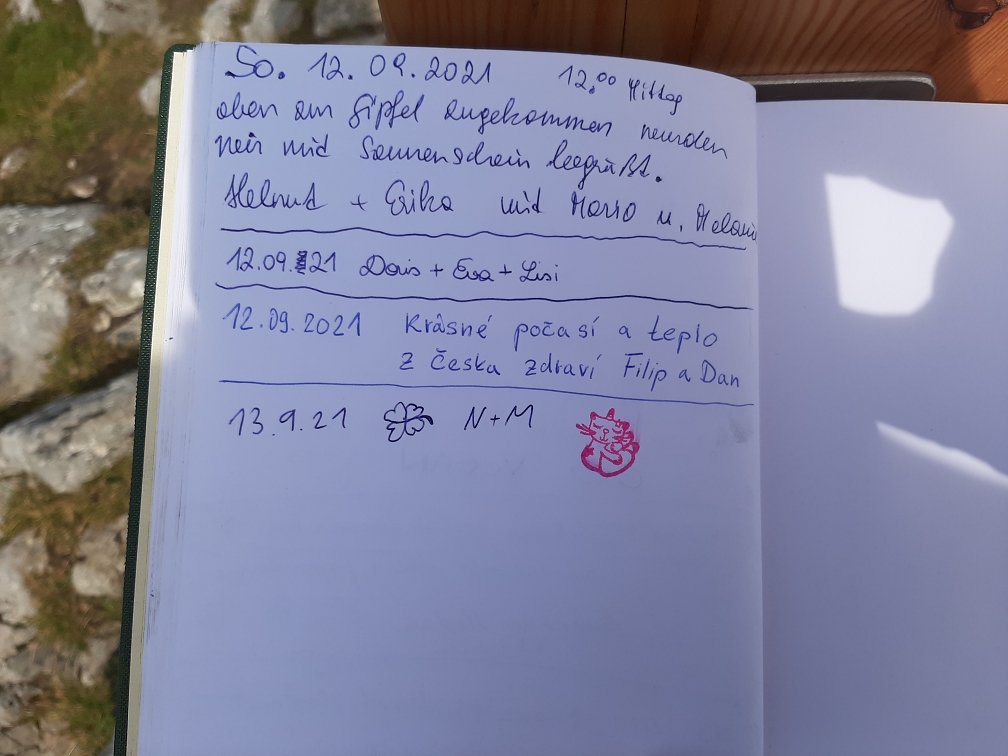 So. 12.09.2021 12,00 Mittag
oben am Gipfel angekommen wurden
wir mid Sonnenschein begrüßt.
Helmut + Erika mid Mario u. Melanie
12.09.21 Doris + Eva + Lisi
12.09.2021 Krásné počasí a teplo
z Česka zdraví Filip a Dan
13.9.21 N+M